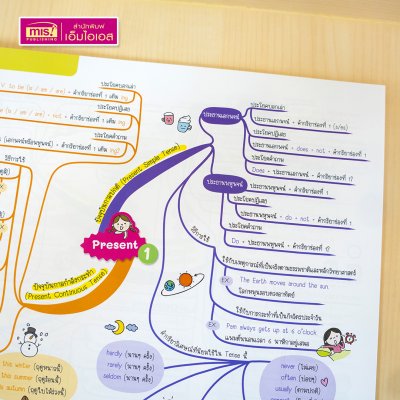 mis
PUBLISHING
สำนักพิมพ์
เอ็มไอเอส
ประโยคบอกเล่า
V. to be (is / am / are) + คำกริยาช่องที่ 1 เติม ing
ประโยคปฏิเสธ
be (is / am / are) + not + คำกริยาช่องที่ 1 เติม ing
ประโยคคำถาม
+ คำกริยาช่องที่ 1 เติม ing?
วิธีการใช้
ปัจจุบันกาลปกติ (Present Simple Tense)
Present
1
ปัจจุบันกาลกำลังกระทำ
(Present Continuous Tense)
ประธานเอกพจน์
ประโยคบอกเล่า
ประธานเอกพจน์ + คำกริยาช่องที่ 1 (s/es)
ประโยคปฏิเสธ
ประธานเอกพจน์ + does + not + คำกริยาช่องที่ 1
ประโยคคำถาม
Does + ประธานเอกพจน์ + คำกริยาช่องที่ 1?
ประธานพหูพจน์
ประโยคบอกเล่า
ประธานพหูพจน์ + คำกริยาช่องที่ 1
ประโยคปฏิเสธ
ประธานพหูพจน์ + do + not + คำกริยาช่องที่ 1
ประโยคคำถาม
Do + ประธานพหูพจน์ + คำกริยาช่องที่ 1?
วิธีการใช้
ใช้กับเหตุการณ์ที่เป็นจริงตามธรรมชาติและหลักวิทยาศาสตร์
EX The Earth moves around the sun.
โลกหมุนรอบดวงอาทิตย์
ใช้กับการกระทำที่เป็นกิจวัตรประจำวัน
EX Pam always gets up at 6 o'clock.
แพมตื่นนอนเวลา 6 นาฬิกาอยู่เสมอ
คำกริยาวิเศษณ์ที่นิยมใช้ใน Tense นี้
hardly (นานๆ ครั้ง)
rarely (นานๆ ครั้ง)
seldom (นานๆ ครั้ง)
never (ไม่เคย)
often (บ่อยๆ)
usually (ตามปกติ)
this winter (ฤดูหนาวนี้)
this summer (ฤดูร้อนนี้)
this autumn (ฤดูใบไม้ร่วงนี้)